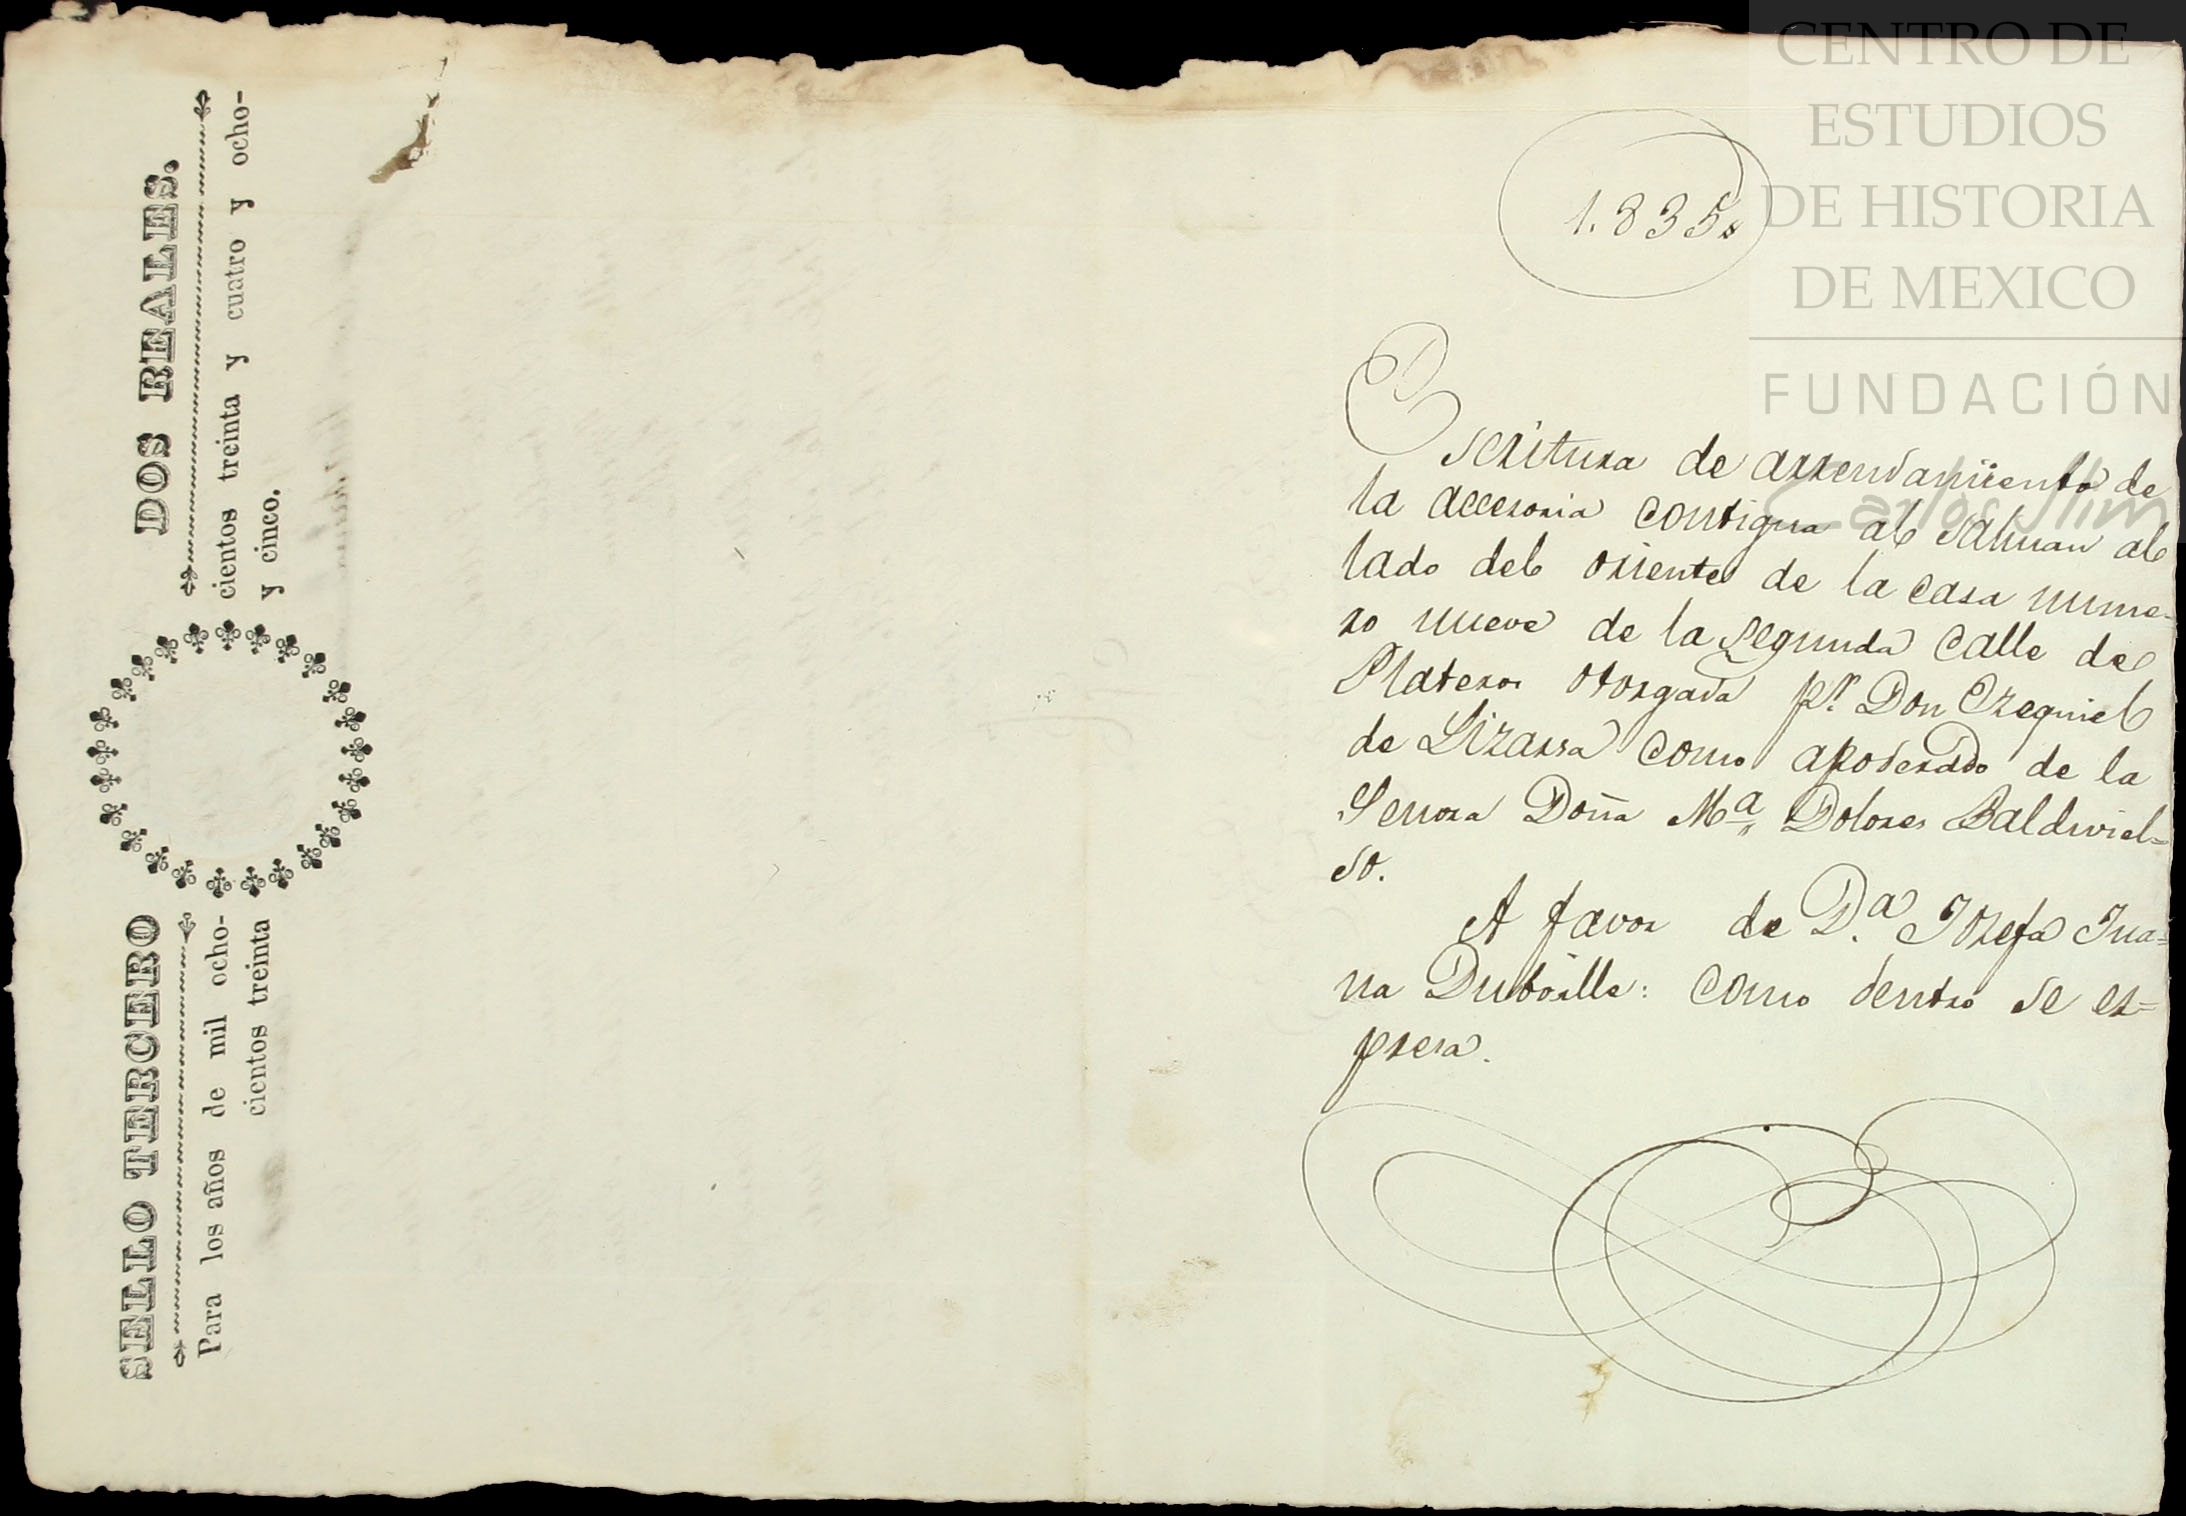 SELLO TERCERO
Para los años de mil ocho-
cientos treinta
DOS REALES.
cientos treinta y cuatro y ocho-
y cinco.
1.835
Escritura de arrendamiento de
la accesoria contigua al saluan al
lado del oriente de la casa nume-
ro nueve de la segunda calle de
Plateros otorgada pr. Don Ezequiel
de Lizarsa como apoderado de la
Senora Doña Ma Dolores Baldiviel=
so.
A favor de D.a Jozefa Jua=
na Duboille: como dentro se es=
presa.
CENTRO DE
ESTUDIOS
DE HISTORIA
DE MEXICO
FUNDACIÓN
Carlos Slim